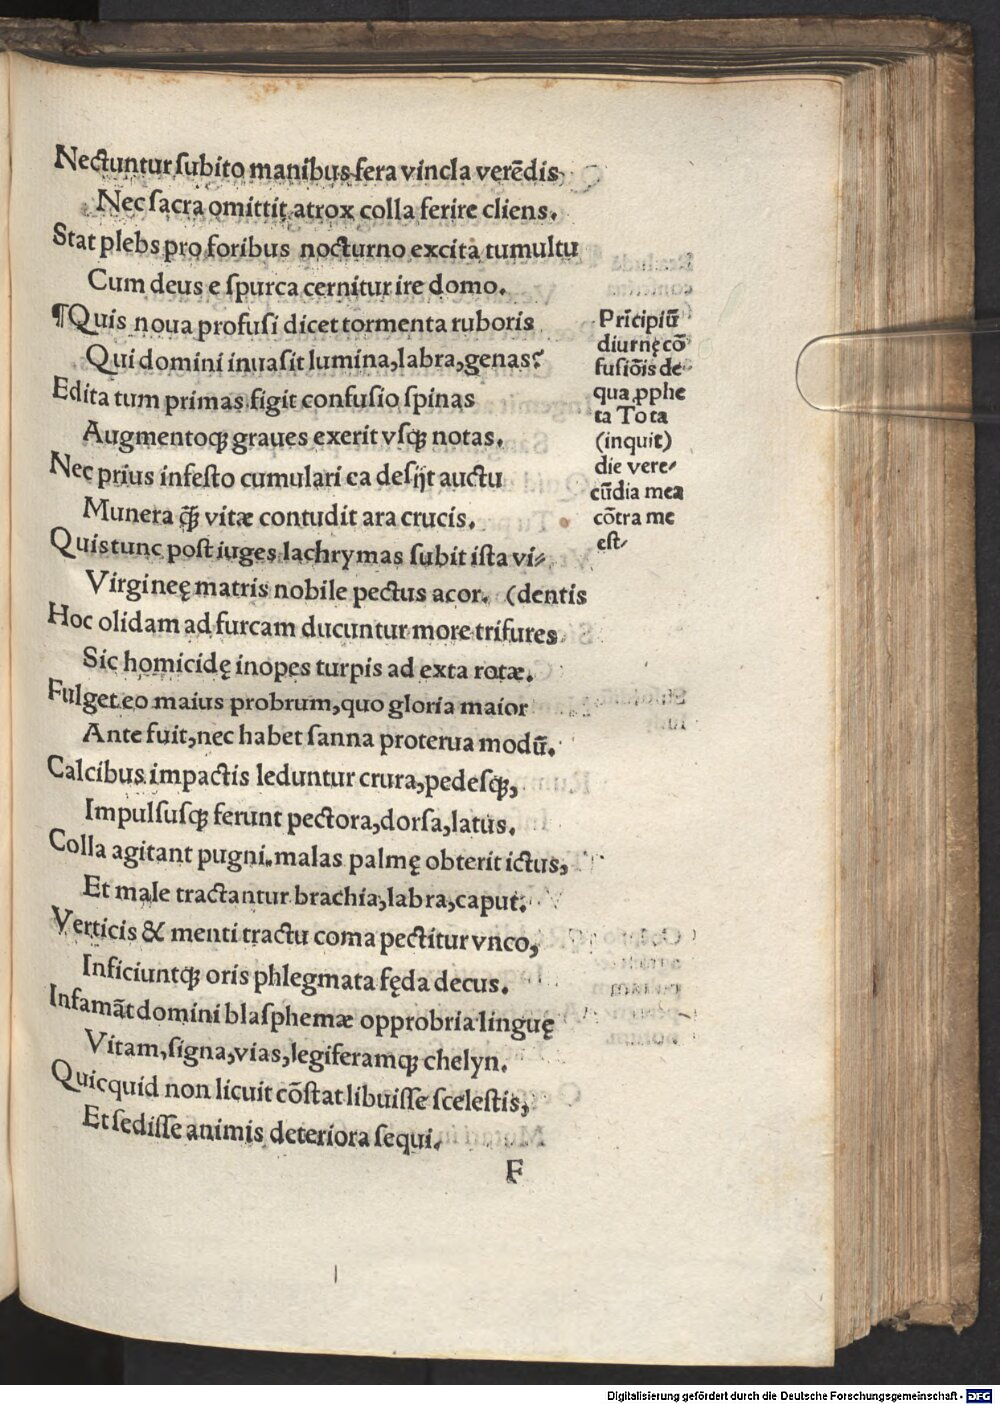 Nectuntur subito manibus fera vincla verēdis,
Nec sacra omittit atrox colla ferire cliens.
Stat plebs pro foribus nocturno excita tumultu
Cum deus e spurca cernitur ire domo.
¶Quis noua profusi dicet tormenta ruboris
Qui domini inuasit lumina, labra, genas?
Edita tum primas figit confusio spinas
Augmentoqȝ graues exerit vsqȝ notas.
Nec prius infesto cumulari ea desijt auctu
Munera q̄ȝ vitæ contudit ara crucis.
Quis tunc post iuges lachrymas subit ista vi-
Virgineę matris nobile pectus acor. (dentis
Hoc olidam ad furcam ducuntur more trifures
Sic homicidę inopes turpis ad exta rotæ.
Fulget eo maius probrum, quo gloria maior
Ante fuit, nec habet sanna proterua modū.
Calcibus impactis leduntur crura, pedesqȝ,
Impulsusqȝ ferunt pectora, dorsa, latus.
Colla agitant pugni. malas palmę obterit ictus,
Et male tractantur brachia, labra, caput.
Verticis & menti tractu coma pectitur vnco,
Inficiuntqȝ oris phlegmata fęda decus.
Infamāt domini blasphemæ opprobria linguę
Vitam, signa, vias, legiferamqȝ chelyn.
Quicquid non licuit cōstat libuisse scelestis,
Et sedisse animis deteriora sequi.
F
Prīcipiū
diurnę cō
fusiōis de
qua ꝓphe
ta Tota
(inquit)
die vere-
cūdia mea
cōtra me
est-
Digitalisierung gefördert durch die Deutsche Forschungsgemeinschaft - DFG